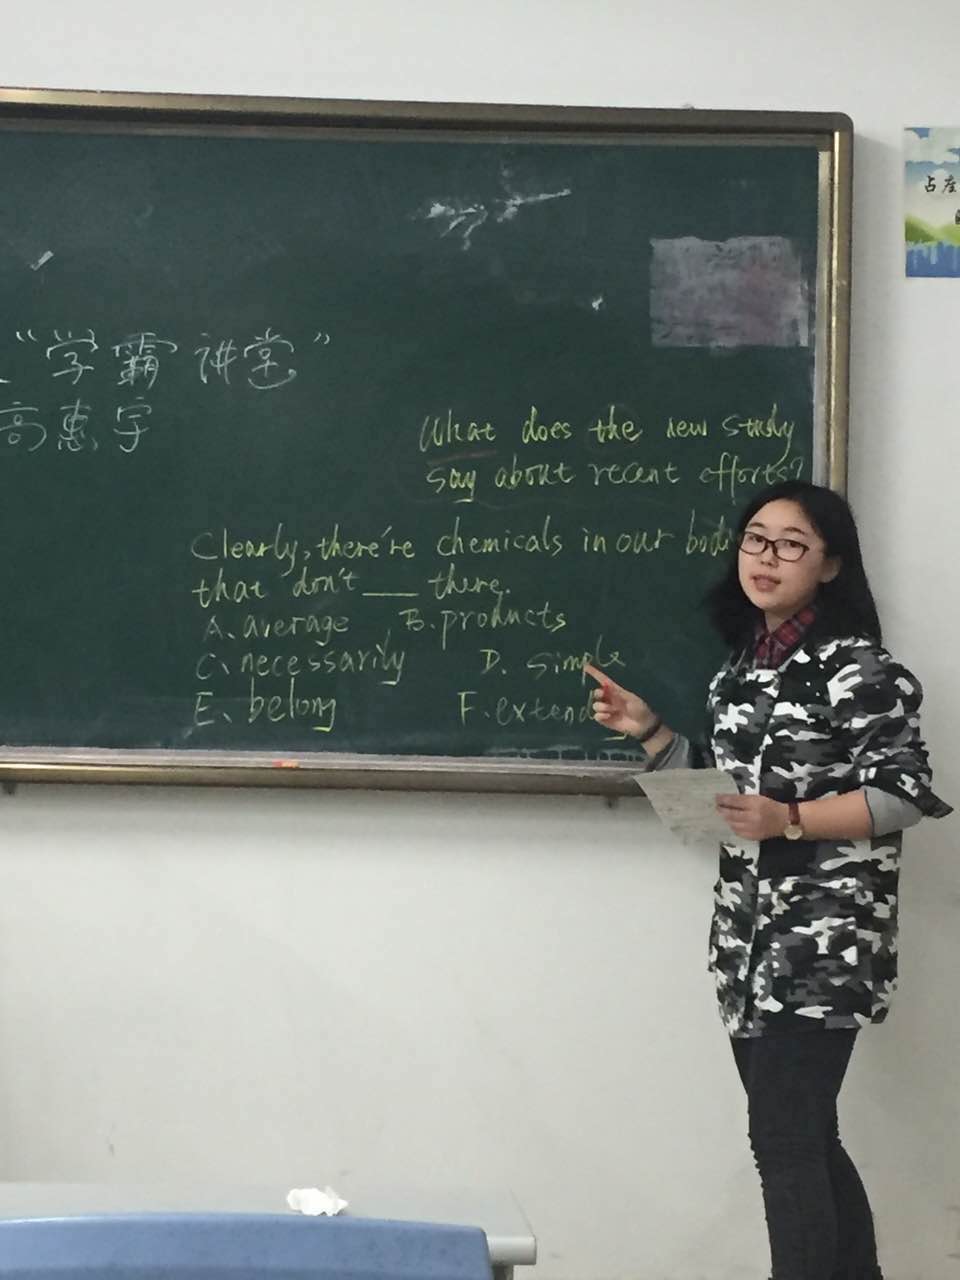 “学霸讲堂”
高惠宇
What does the new study
say about recent efforts?
Clearly, there're chemicals in our bodi
that don't ___ there.
A、average B.products
C、necessarily D. simple
E、belong F.extend
占座